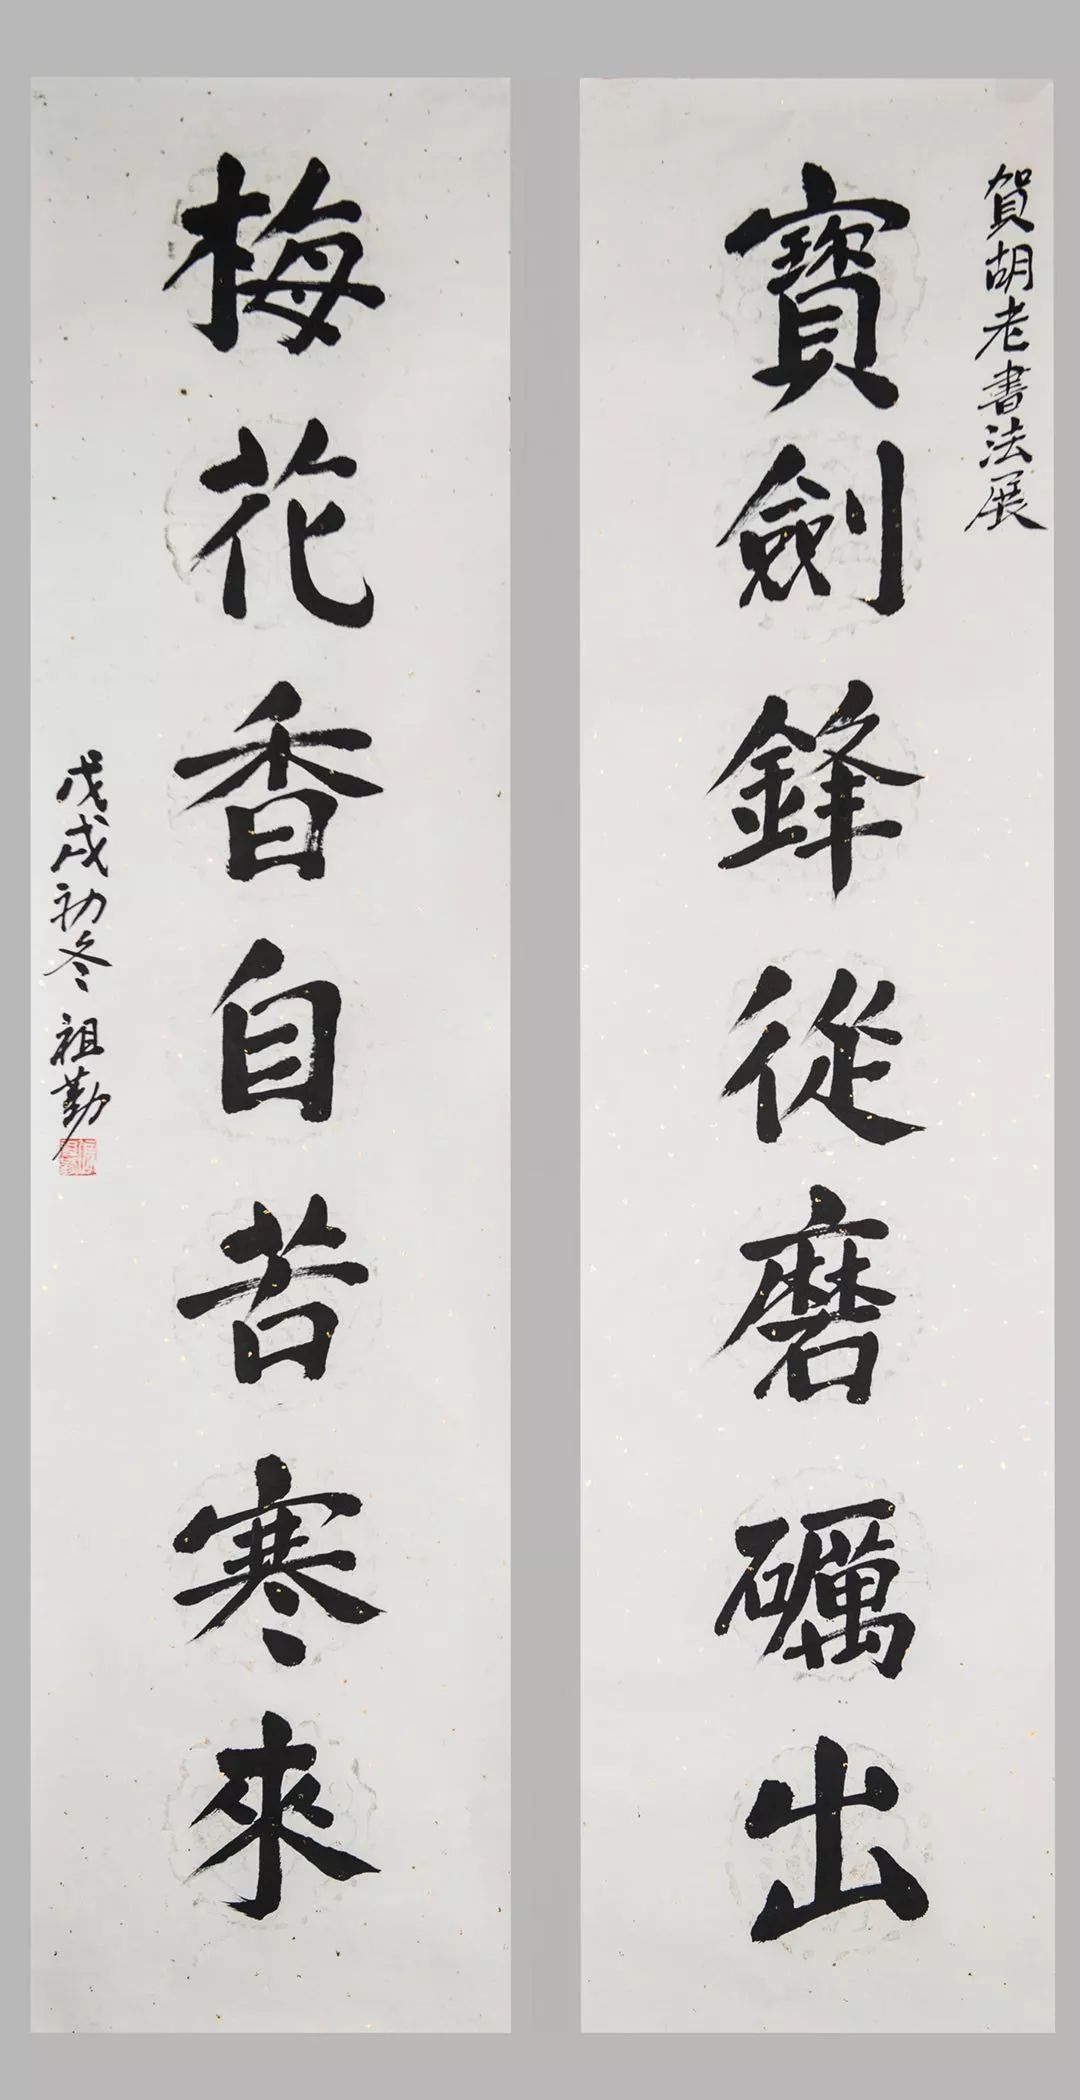 賀胡老書法展
寶劍鋒從磨礪出
梅花香自苦寒來
戊戌初冬 祖勤